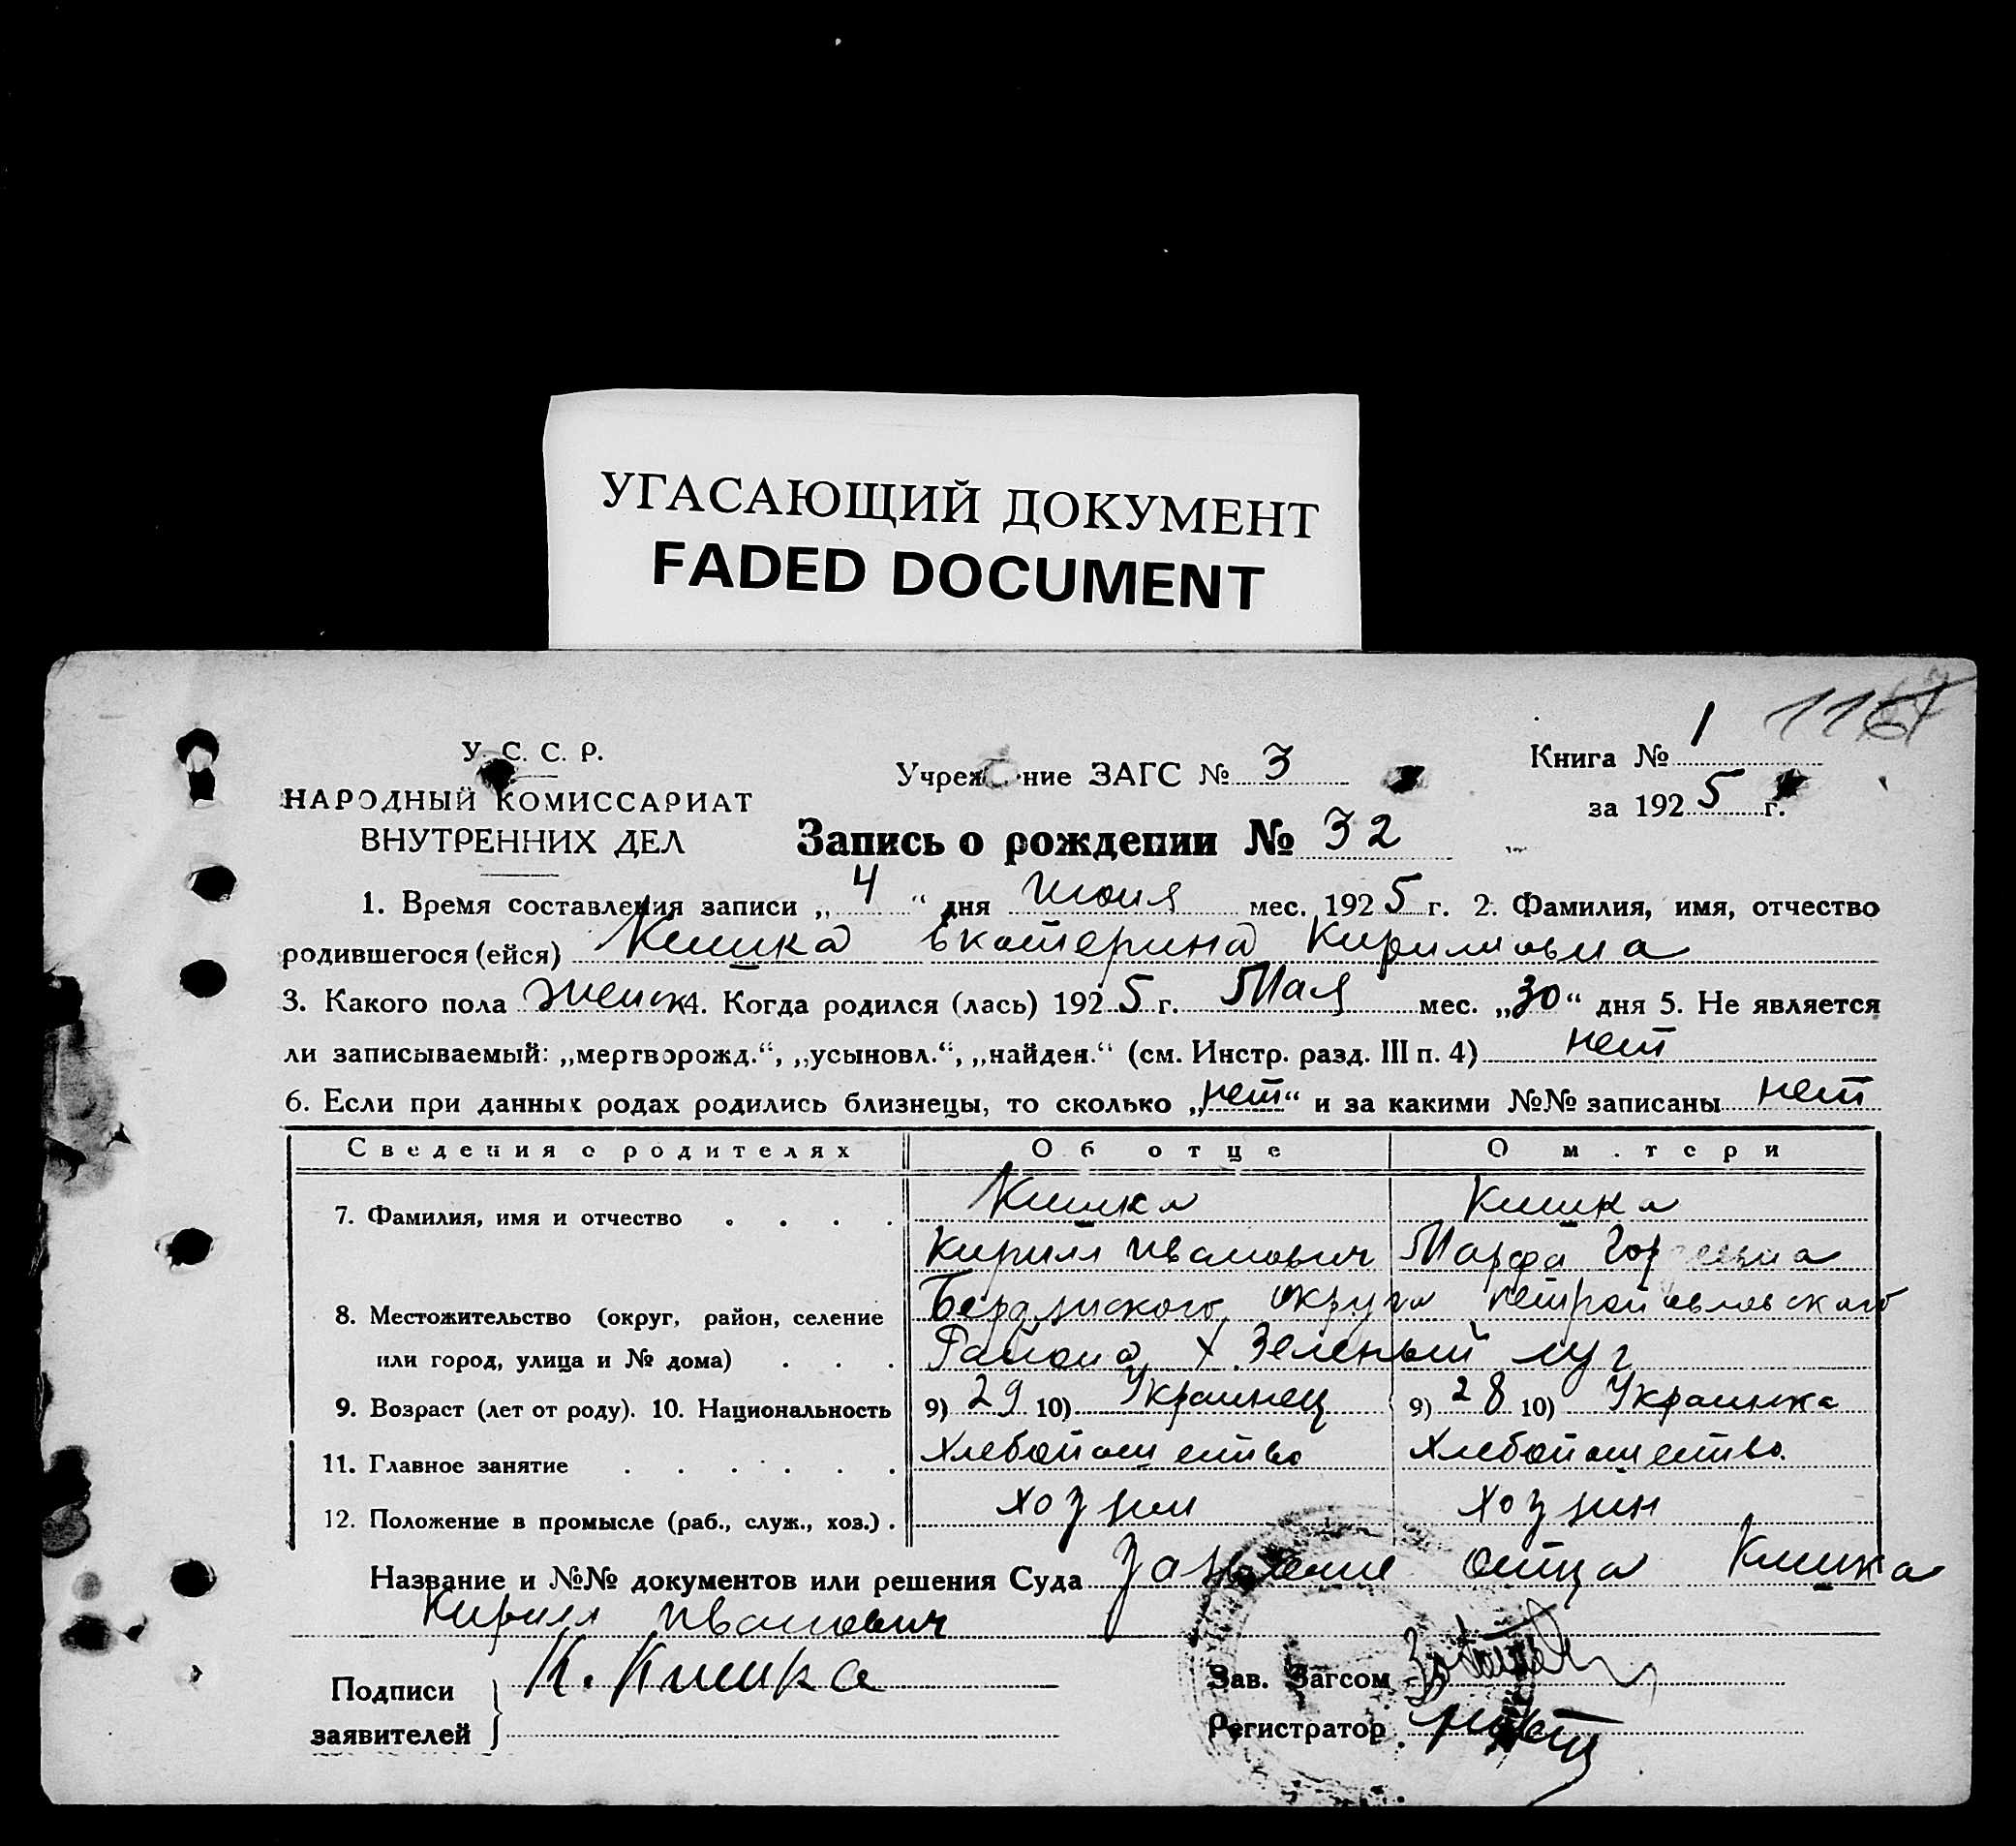 УГАСАЮЩИЙ ДОКУМЕНТ
FADED DOCUMENT
1167
У. С. С. Р.
НАРОДНЫЙ КОМИССАРИАТ
ВНУТРЕННИХ ДЕЛ
Учреж ние ЗАГС № 3
Книга № 1
за 1925 г.
Запись о рождении № 32
1. Время составления записи „ 4 “ дня Июня мес. 1925 г. 2. Фамилия, имя, отчество
родившегося (ейся) Кишка Екатерина Кириловна
3. Какого пола женск 4. Когда родился (лась) 1925 г. Мая мес. „30“ дня 5. Не является
ли записываемый: „мертворожд.“, „усыновл.“, „найден.“ (см. Инстр. разд. III п. 4) нет
6. Если при данных родах родились близнецы, то сколько „нет“ и за какими №№ записаны нет
Сведения о родителях Об отце О м.тери
7. Фамилия, имя и отчество . . . . Кишка Кишка
Кирилл Иванович Марфа
8. Местожительство (округ, район, селение Бердянского округа Петропавловского
или город, улица и № дома) . . . Района х Зеленый луг
9. Возраст (лет от роду). 10. Национальность 9) 29 10) Украинец 9) 28 10) Украинка
11. Главное занятие . . . . . . Хлебопашество Хлебопашество.
12. Положение в промысле (раб., служ., хоз.) . хозяин хозяин
Название и №№ документов или решения Суда Заявление отца Кишка
Кирилл Иванович
Подписи
заявителей
К. Кишка
Зав. Загсом
Регистратор